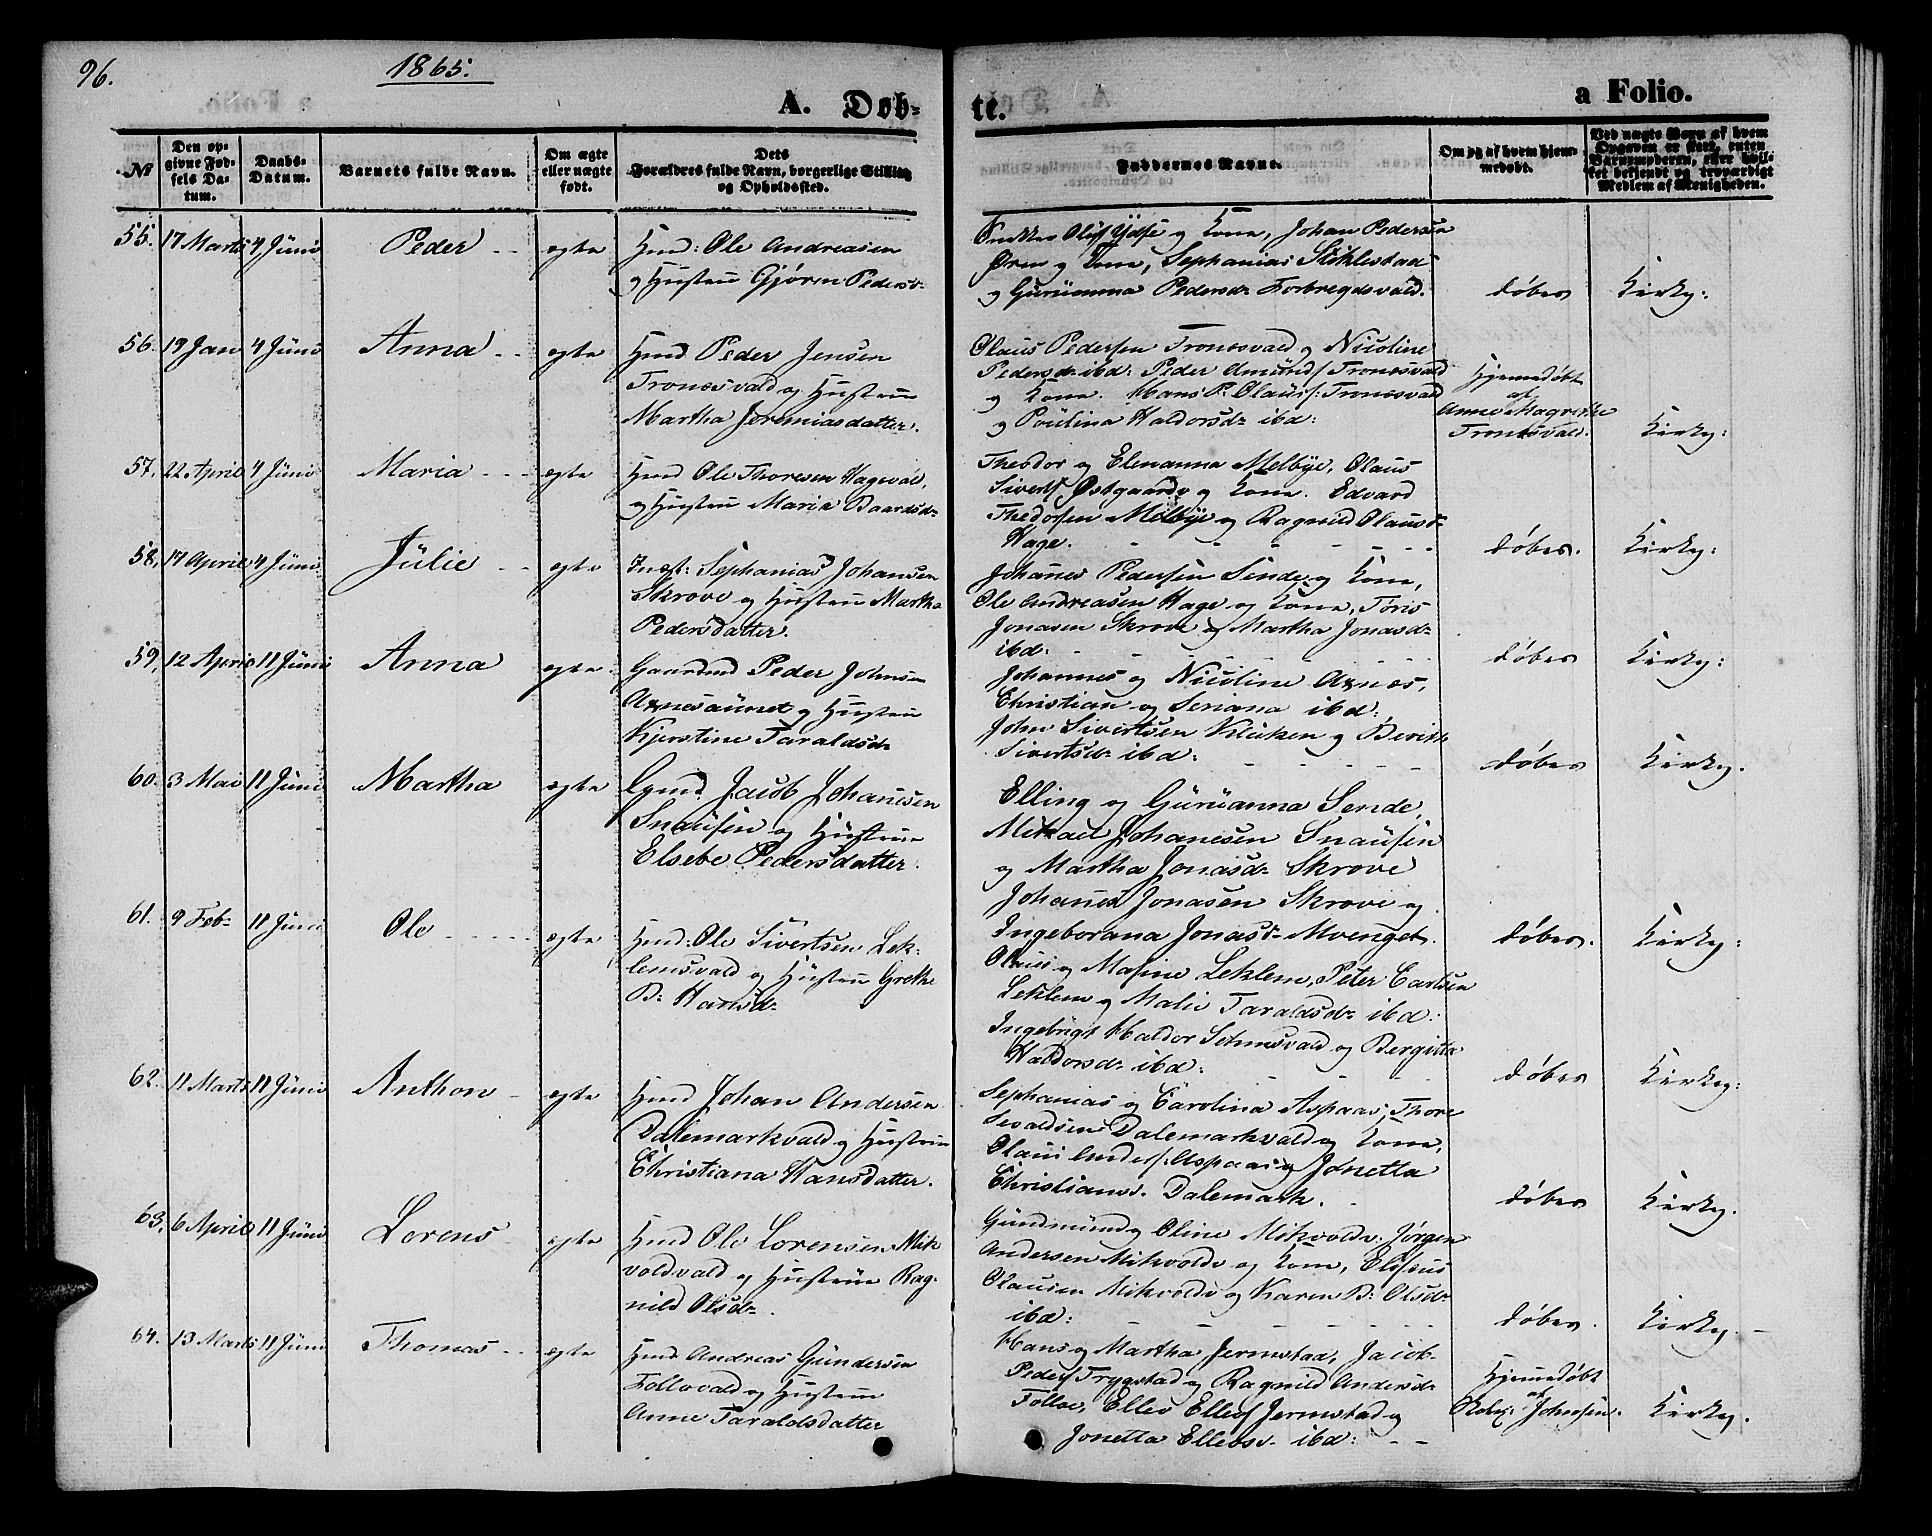 96.
1865.
A. Døb-
te.
a Folio.
№
Den op-
givne Fød-
sels Da-
tum.
Daabs-
Datum.
Barnets fulde Navn.
Om ægte
eller uægte
født.
Dets
Forældres fulde Navn, borgerlige Stilling
og Opholdssted.
Faddernes Navne.
Om og af hvem hjem-
medøbt.
Ved uægte Børn af hvem
Opgaven er skeet, enten
Barnemoderen, eller hvil-
ket bekjendt og troværdigt
Medlem af Menigheden.
55. 17 Marts 4 Juni Peder ægte Hmd: Ole Andreasen
og Hustru Gjøren Pedersd:
Oluf Ydse og Kone, Johan Pedersen
Øren og Kone, Sephanias Stiklestad
og Guruanna Pedersd: Forbregdsvald. døbes Kirky:
56. 19 Jan 4 Juni Anna ægte Hmd Peder Jensen
Tronesvald og Hustru
Martha Jeremiasdatter.
Olaus Pedersen Tronesvald og Nicoline
Pedersd: ibd: Peder Amunds Tronesvald
og Kone. Hans P. Olaus: Tronesvald
og Poulina Haldorsd: ibd:
Hjemmedøbt
af
Anne Magrethe
Tronesvald. Kirky:
57. 22 April 4 Juni Maria ægte Hmd Ole Thoresen Hagevald,
og Hustru Maria Baardsd:
Theodor og Elenanna Melbye, Olaus
Siverts Østgaard og Kone. Edvard
Thedorsen Melbye og Ragnild Olausd:
Hage. døbes. Kirky:
58. 17 April 4 Juni Julie ægte Indst: Sephanias Johansen
Skrove og Hustru Martha
Pedersdatter.
Johanes Pedersen Sende og Kone,
Ole Andreasen Hage og Kone, Toris
Jonasen Skrove og Martha Jonasd:
ibd: døbes Kirky:
59. 12 April 11 Juni Anna ægte Gaardmd Peder Johnsen
Axnesaunet og Hustru
Kjerstine Taraldsd:
Johannes og Nicoline Axnes,
Christian og Seriana ibd:
John Sivertsen Kluken og Berith
Sivertsd: ibd: døbes Kirky.
60. 3 Mai 11 Juni Martha ægte Gmd. Jacob Johanesen
Snausen og Hustru
Elsebe Pedersdatter.
Elling og Guruanna Sende,
Mikael Johanesen Snausen
og Martha Jonasd: Skrove
Johanes Jonasen Skrove og
Ingeborana Jonasd: Mvenget. døbes. Kirky:
61. 9 Feb: 11 Juni Ole ægte Hmd: Ole Sivertsen Lek-
lemsvald og Hustru Grethe
B: Hansd:
Olaus og Masine Leklem, Peter Carlsen
Leklem og Malie Taraldsd: ibd:
Ingebrigt Haldor og Bergitta
Haldorsd: ibd: døbes Kirky:
62. 11 Marts 11 Juni Anthon ægte Hmd Johan Andersen
Dalemarkvald og Hustru
Christiana Hansdatter.
Sephanias og Carolina Aspaas, Thore
Sevaldsen Dalemarkvald og Kone,
Olaus Anders: Aspaas og Jonetta
Christiansd. Dalemark. døbes Kirky.
63. 6 April 11 Juni Lorens ægte Hmd Ole Lorensen Mik
voldvald og Hustru Rag-
nild Olsd:
Gundmund og Oline Mikvold, Jørgen
Andersen Mikvold og Kone, Elisæus
Olausen Mikvold og Karen B: Olsd:
ibd: døbes. Kirky.
64. 13 Marts 11 Juni Thomas ægte Hmd Andreas Gundersen
Follovald og Hustru
Anne Taraldsdatter
Hans og Martha Jermstad, Jacob
Peders Trygstad og Ragnild Andersd:
Folloe, Ellev Ellevs Jermstad og
Jonetta Ellevsd. ibd:
Hjemmedøbt
af
Johnsen. Kirky.